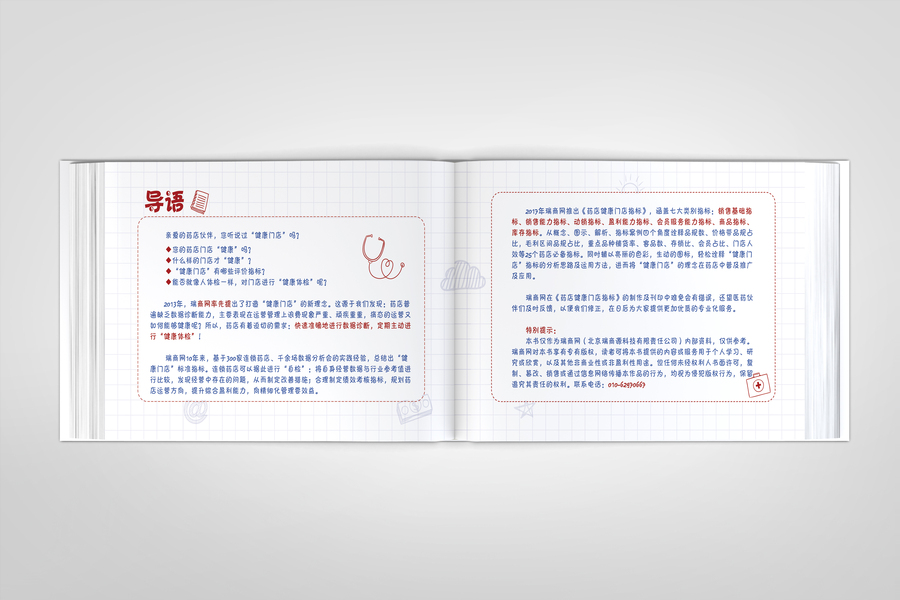 导语
亲爱的药店伙伴，您听说过“健康门店”吗？
◆您的药店门店“健康”吗？
◆什么样的门店才“健康”？
◆“健康门店”有哪些评价指标？
◆能否就像人体检一样，对门店进行“健康体检”呢？
2013年，瑞商网率先提出了打造“健康门店”的新理念。这源于我们发现：药店普
遍缺乏数据诊断能力，主要表现在运营管理上浪费现象严重、顽疾重重，病态的运营又
如何能够健康呢？所以，药店有着迫切的需求：快速准确地进行数据诊断，定期主动进
行“健康体检”！
瑞商网10年来，基于300家连锁药店、千余场数据分析会的实践经验，总结出“健
康门店”标准指标。连锁药店可以据此进行“自检”：将自身经营数据与行业参考值进
行比较，发现经营中存在的问题，从而制定改善措施；合理制定绩效考核指标，规划药
店运营方向，提升综合盈利能力，向精细化管理要效益。
2017年瑞商网推出《药店健康门店指标》，涵盖七大类别指标：销售基础指
标、销售能力指标、动销指标、盈利能力指标、会员服务能力指标、商品指标、
库存指标。从概念、图示、解析、指标案例四个角度诠释品规数、价格带品规占
比，毛利区间品规占比，重点品种铺货率、客品数、存销比、会员占比、门店人
效等25个药店必备指标。同时辅以亮丽的色彩，生动的图标，轻松诠释“健康门
店”指标的分析思路及运用方法，进而将“健康门店”的理念在药店中普及推广
及应用。
瑞商网在《药店健康门店指标》的制作及刊印中难免会有错误，还望医药伙
伴们及时反馈，以便我们修正，在日后为大家提供更加优质的专业化服务。
特别提示：
本书仅作为瑞商网（北京瑞商源科技有限责任公司）内部资料，仅供参考。
瑞商网对本书享有专有版权，读者可将本书提供的内容或服务用于个人学习、研
究或欣赏，以及其他非商业性或非盈利性用途。但任何未经权利人书面许可，复
制、篡改、销售或通过信息网络传播本作品的行为，均视为侵犯版权行为，保留
追究其责任的权利。联系电话：010-62930663